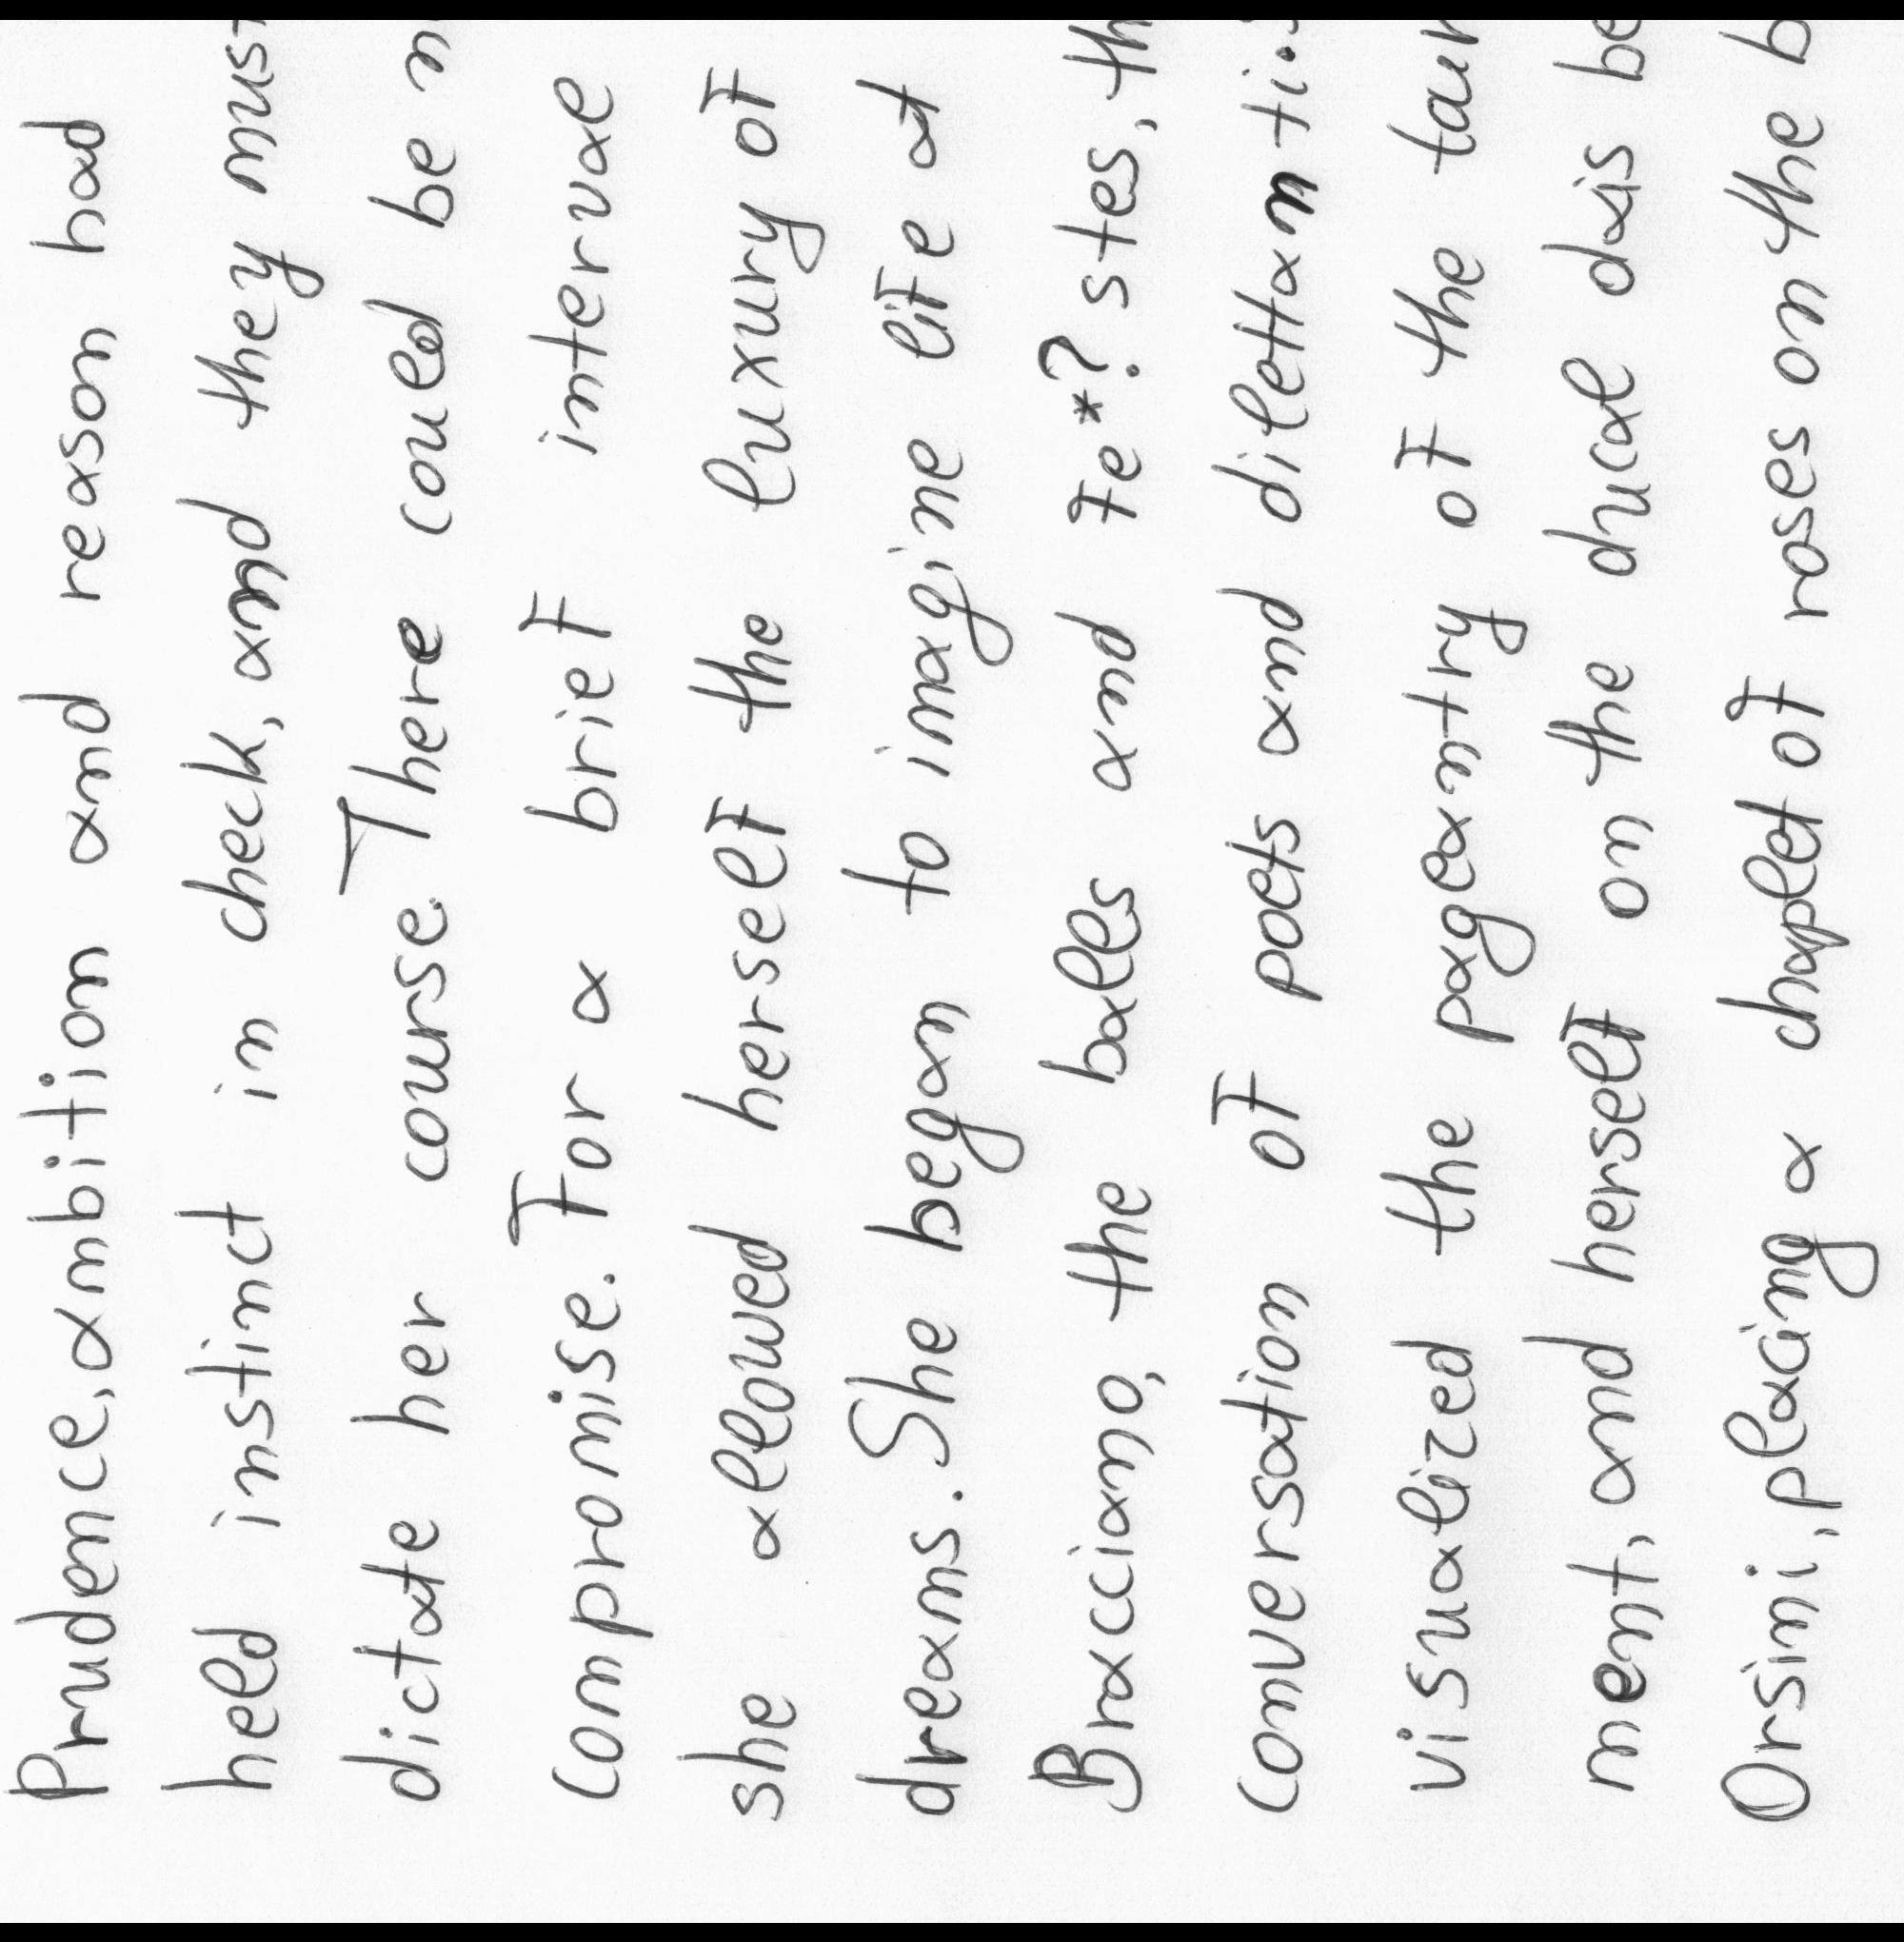 Prudence, ambition and reason had
held instinct in check, and they must
dictate her course. There could be n
compromise. For a brief interval
she allowed herself the luxury of
dreams. She began to imagine life at
Bracciano, the balls and fe*? stes, th
conversation of poets and dilettanti.s
visualized the pageantry of the tour
ment, and herself on the ducal dais be
Orsini, placing a chaplet of roses on the b